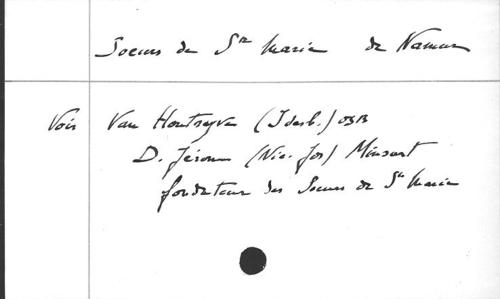 Soeurs de Ste Marie de Namur
Voir Van Houtryve (Idesb.) OSB
D. Jérome (Nic. Jos) Minsart
fondateur des Soeurs de Ste Marie